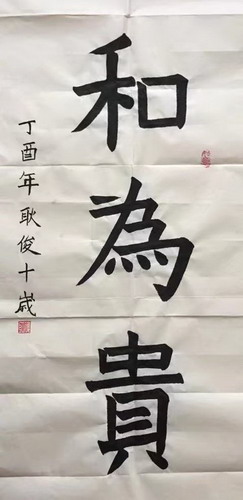 和為貴
丁酉年耿俊十歲